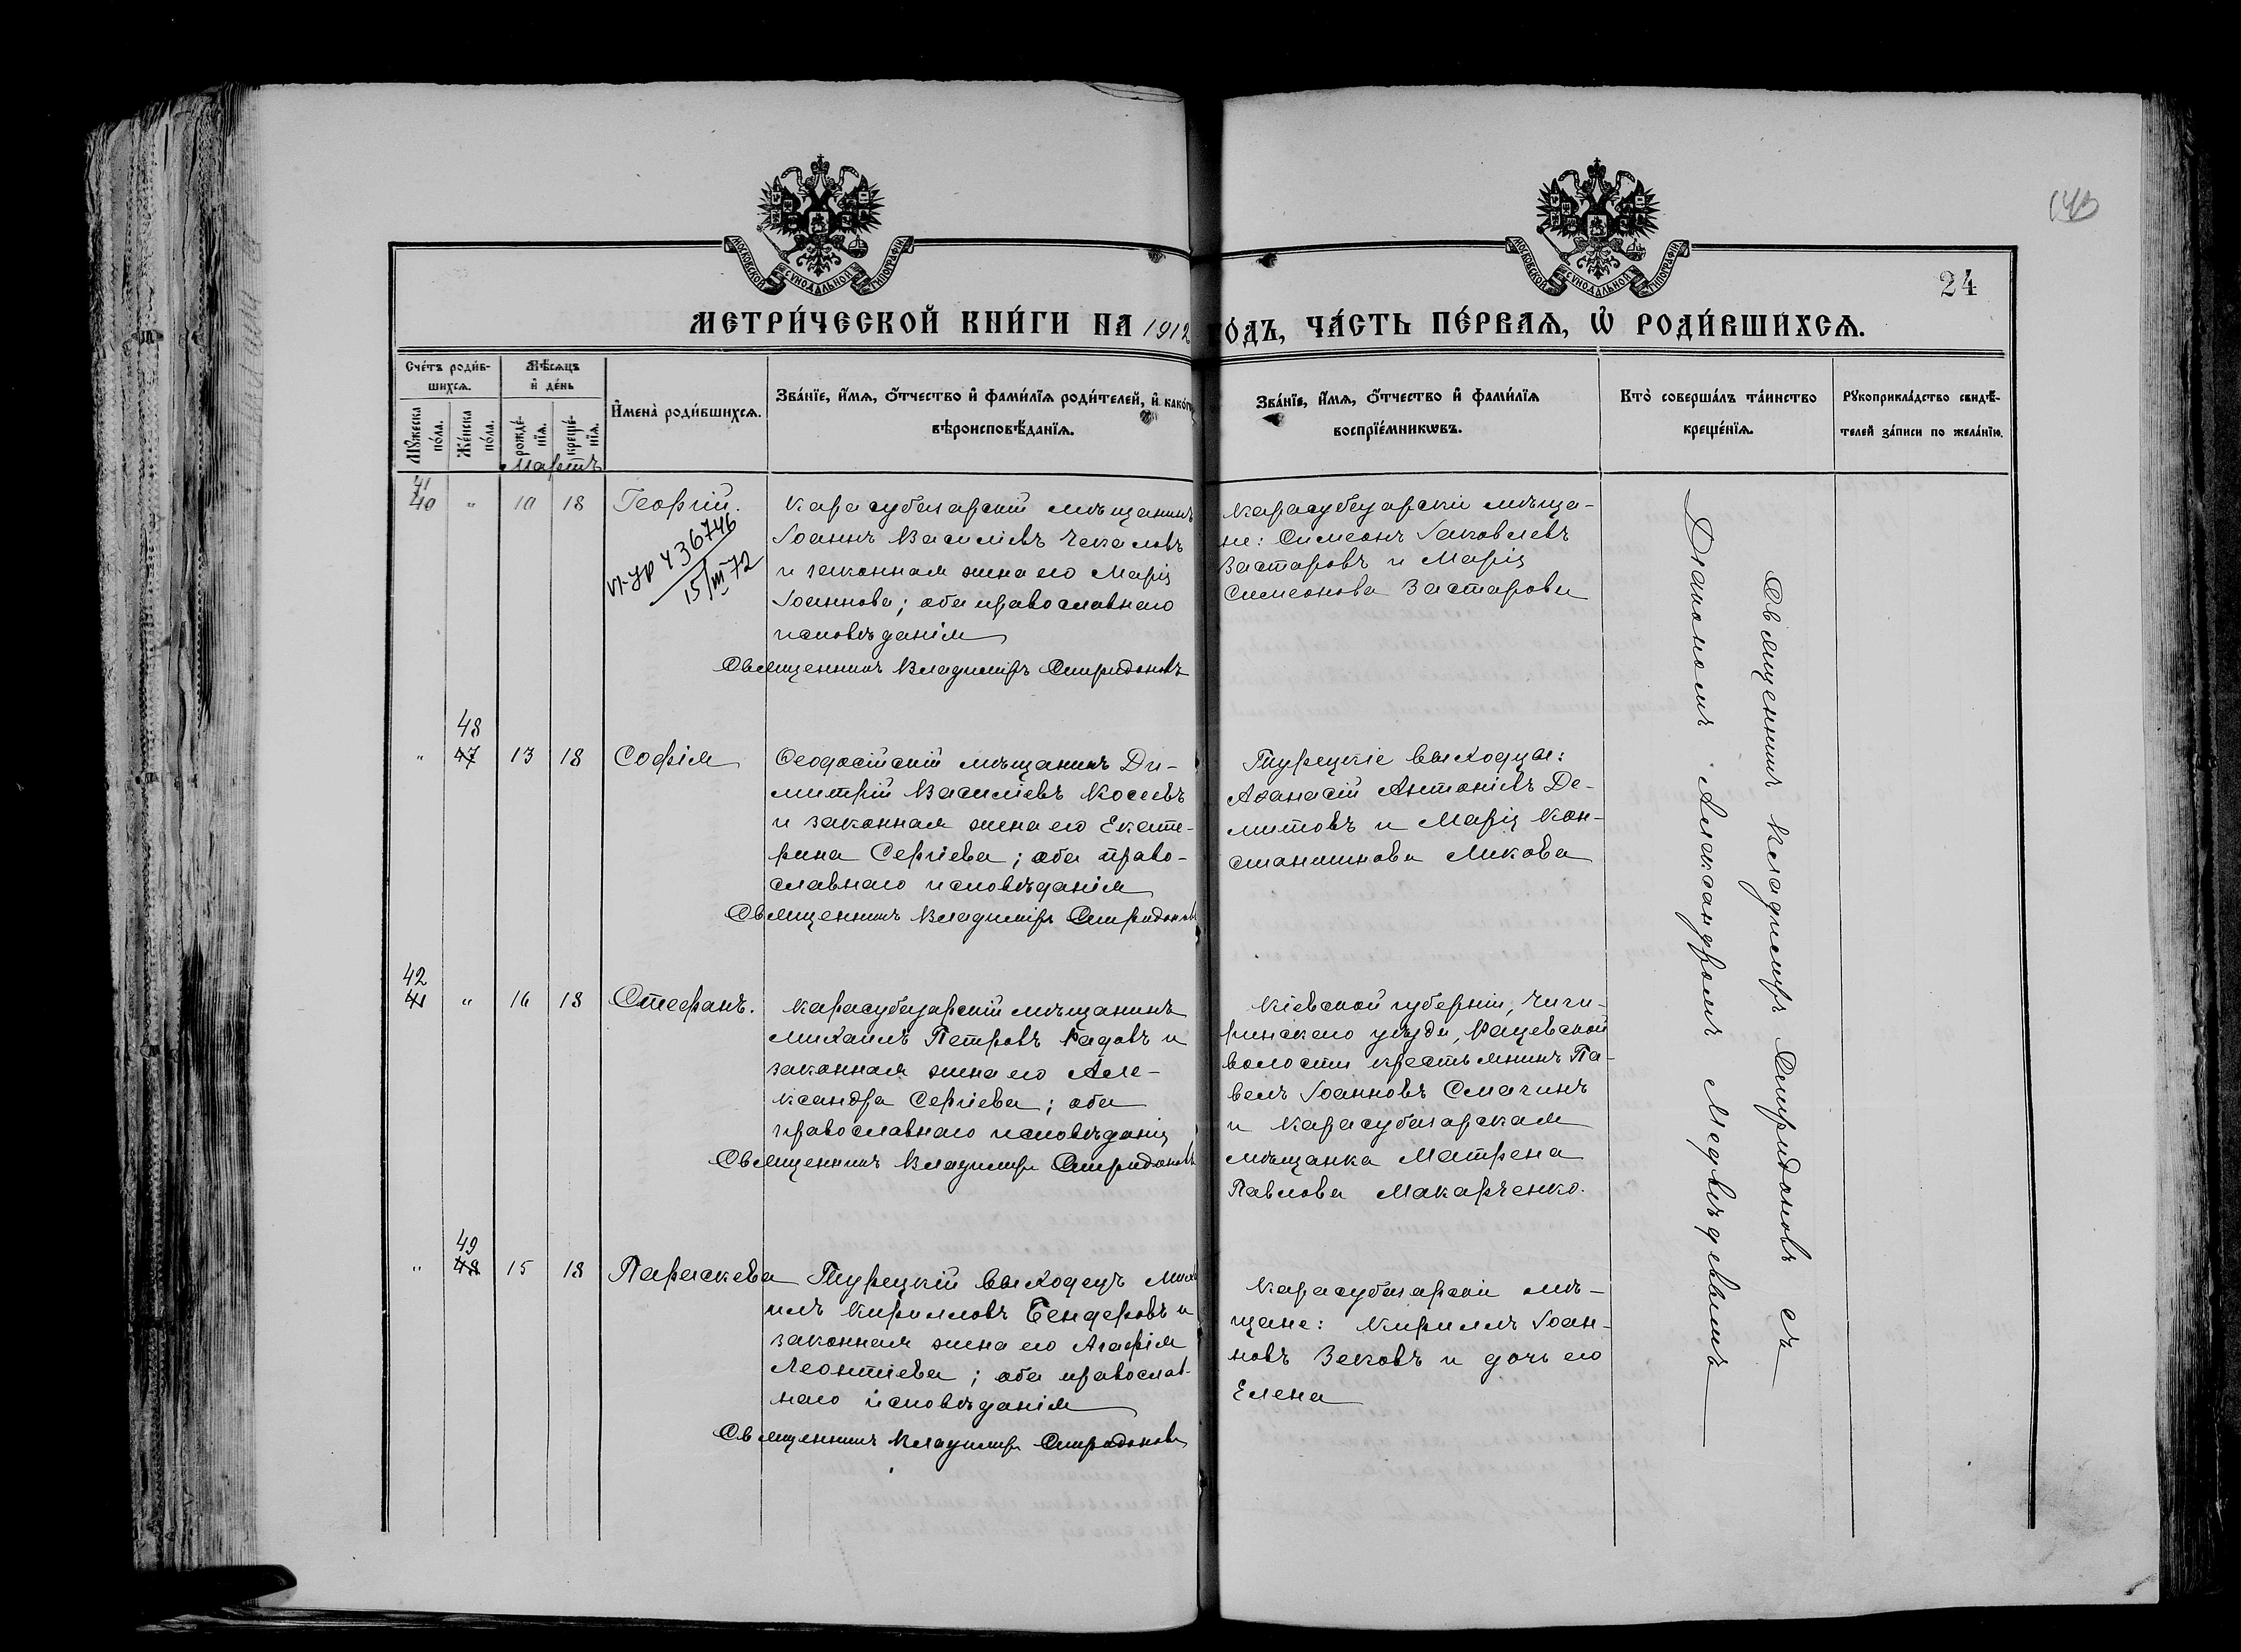 143
24
МОСКОВСКОЙ СѴНОДАЛЬНОЙ ТИПОГРАФІИ
МОСКОВСКОЙ СѴНОДАЛЬНОЙ ТИПОГРАФІИ
МЕТРИ́ЧЕСКОЙ КНИ́ГИ НА 1912 ГО́ДЪ, ЧА́СТЬ ПЕ́РВАѦ, Ѡ҆ РОДИ́ВШИХСѦ.
Сче́тъ роди́в-
шихсѧ.
Мꙋ́жеска по́ла.
Же́нска по́ла.
Мѣ́сѧцъ
и҆ де́нь
рожде́-
нїѧ.
креще́-
нїѧ.
И҆мена̀ роди́вшихсѧ.
Зва́нїе, и҆́мѧ, ѻ҆́тчество и҆ фами́лїѧ роди́телей, и҆ како́гѡ
вѣроисповѣ́данїѧ.
Зва́нїе, и҆́мѧ, ѻ҆́тчество и҆ фами́лїѧ
воспрїе́мникѡвъ.
Кто̀ соверша́лъ та́инство
креще́нїѧ.
Рꙋкоприкла́дство свидѣ́-
телей за́писи по жела́нїю.
Мартъ
41
40 " 10 18 Георгій.
436746
15/III 72
Карасубазарскій мѣщанинъ
Іоаннъ Василіевъ Чекаловъ
и законная жена его Марія
Іоаннова; оба православнаго
исповѣданія
Священникъ Владиміръ Спиридоновъ
Карасубазарскіи мѣща-
не: Симеонъ Іаковлевъ
Застаровъ и Марія
Симеонова Застарова
48
" 47 13 18 Софія
Ѳеодосійскій мѣщанинъ Ди-
митрій Василіевъ Косевъ
и законная жена его Екате-
рина Сергіева; оба право-
славнаго исповѣданія
Священникъ Владиміръ Спиридоновъ
Турецкіе выходцы:
Аѳанасій Антоніевъ Де-
митовъ и Марія Кон-
стантинова Микова
42
41 " 16 18 Стефанъ.
Карасубазарскій мѣщанинъ
Михаилъ Петровъ Радовъ и
законная жена его Але-
ксандра Сергіева; оба
православнаго исповѣданія
Священникъ Владиміръ Спиридоновъ
Кіевской губерніи, Чиги-
ринскаго уѣзда, Рацевской
волости крестьянинъ Па-
велъ Іоанновъ Смагинъ
и Карасубазарская
мѣщанка Матрена
Павлова Макарченко.
49
" 48 15 18 Параскева
Турецкій выходецъ Миха
илъ Кирилловъ Бендеровъ и
законная жена его Агафія
Леонтіева; оба православ-
наго исповѣданія
Священникъ Владиміръ Спиридоновъ
Карасубазарскіи мѣ-
щане: Кириллъ Іоан-
новъ Зековъ и дочь его
Елена
Священникъ Владиміръ Спиридоновъ съ
Діакономъ Александромъ Медвѣдевымъ